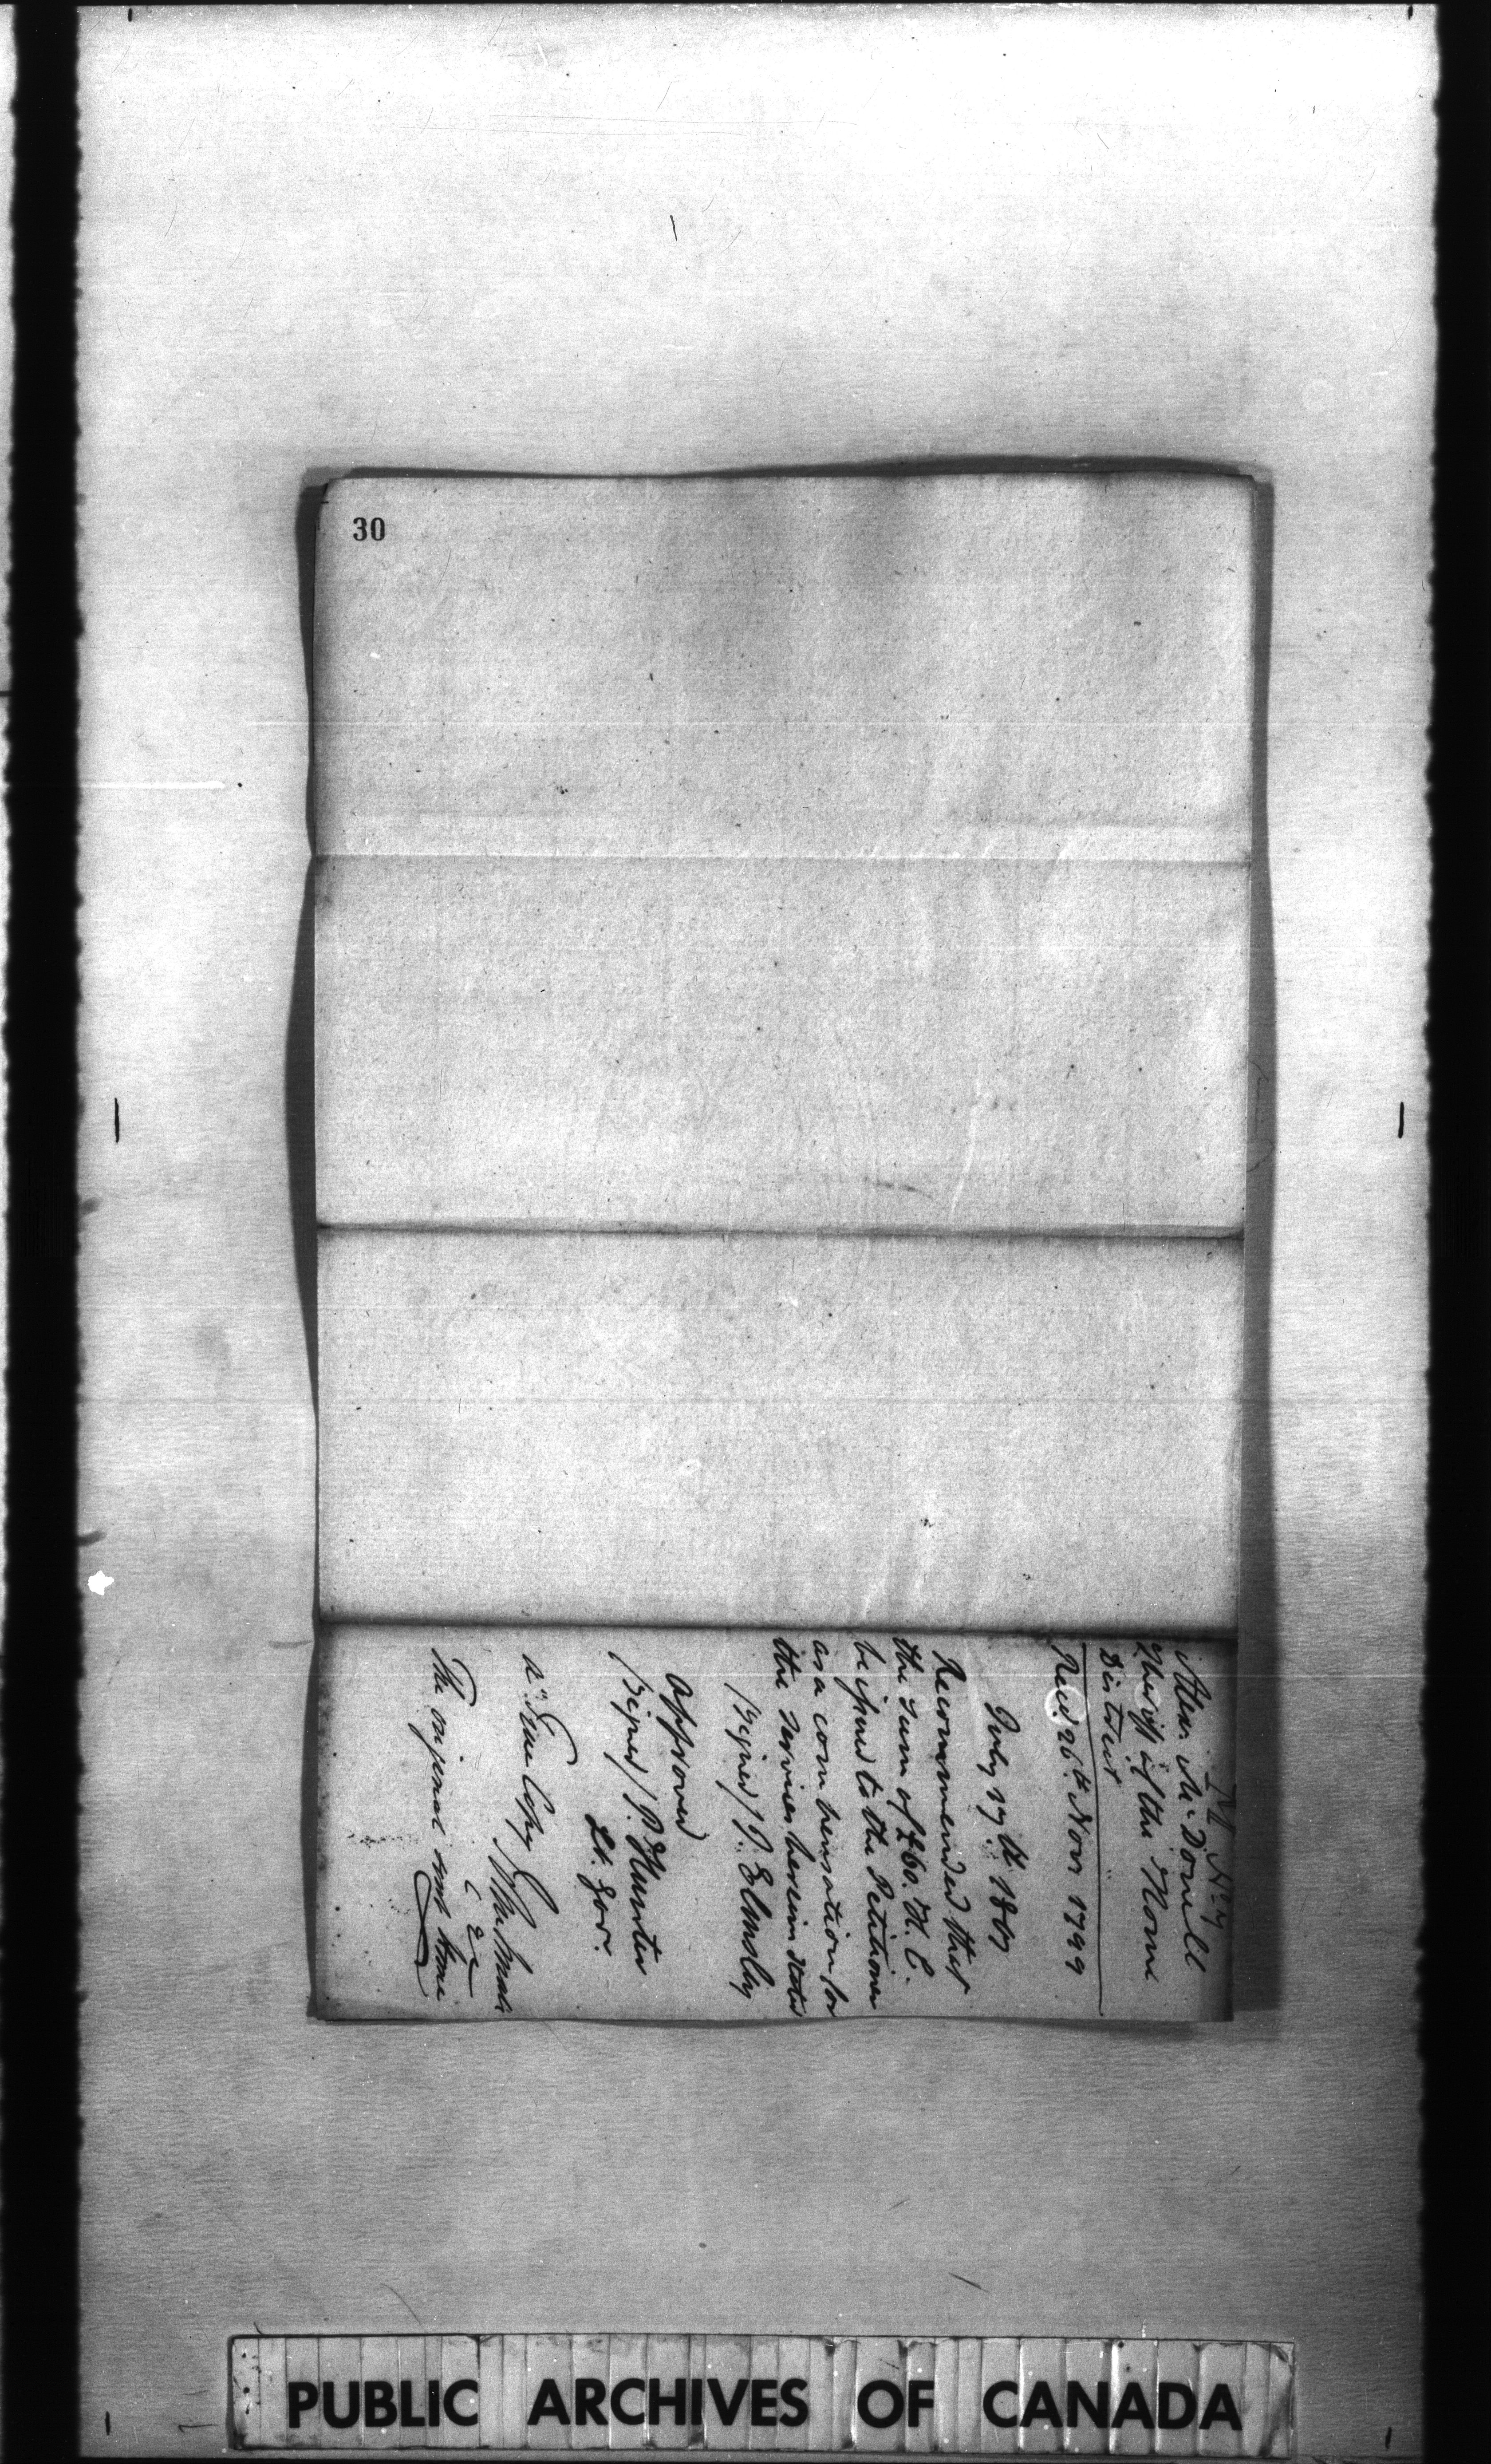 30
M No 7
Alexr McDonell
Sheriff of the Home
District
Recd 26th Novr 1799
July 27th 1801
Recommended that
the sum of £60. H. C.
be issued to the Petitioner
as a compensation for
the services herein stated
(Signed) J. Elmsley
Approved
(Signed) P. Hunter
Lt. Govr.
a True Copy John Small
The original
PUBLIC ARCHIVES OF CANADA